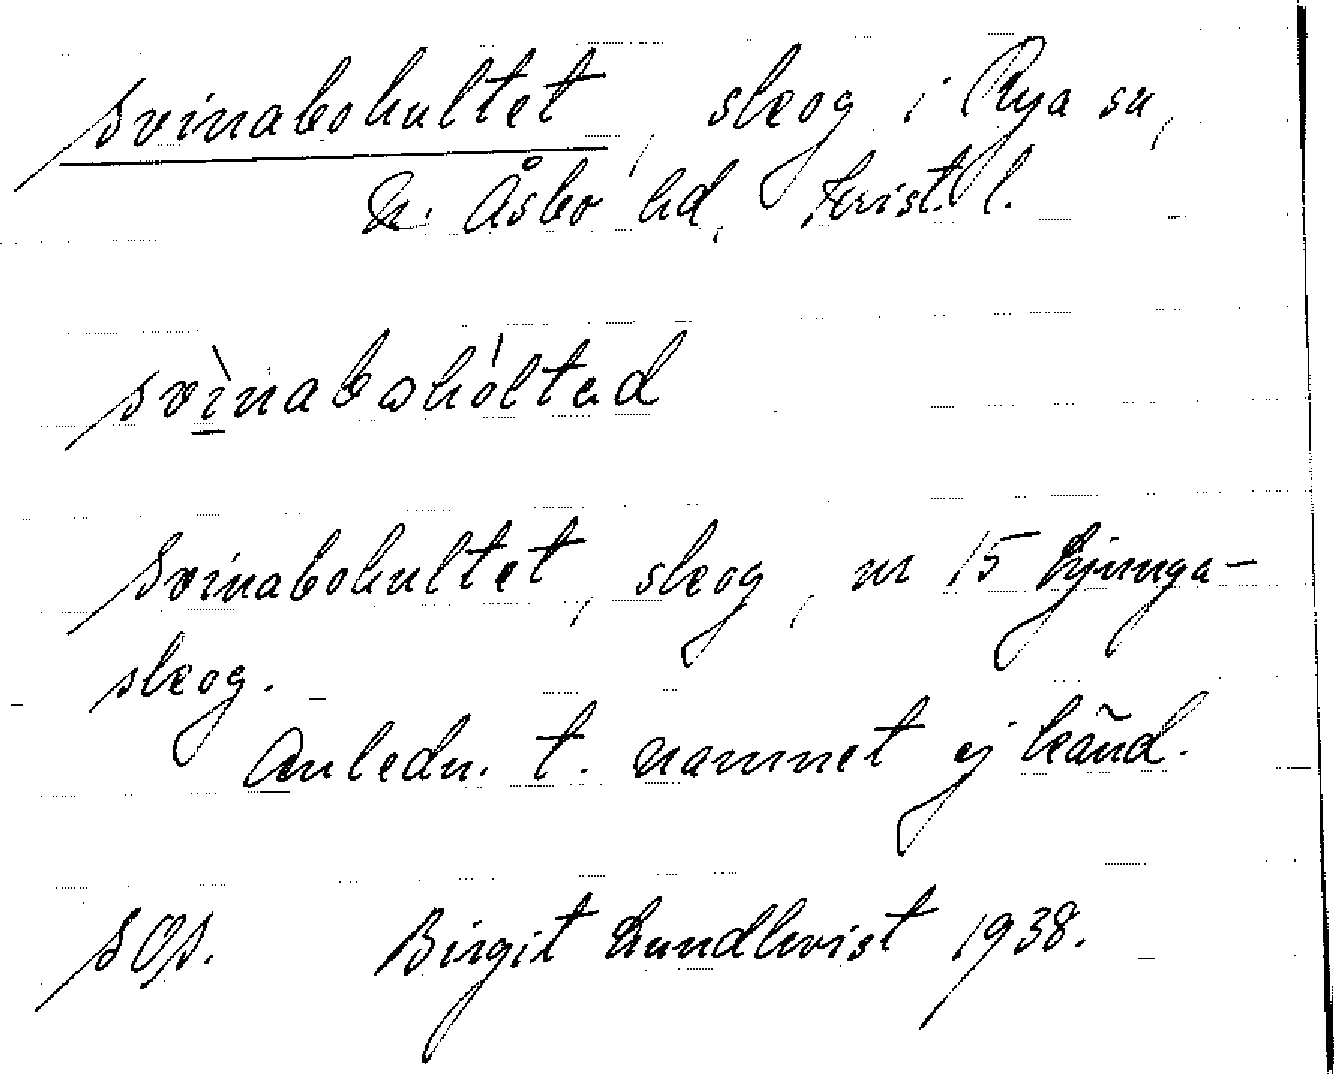 Svinabohultet, skog i Rya sn,
N. Åsbo hd, Krist. l.
svìnabohóltəd
Svinabohultet, skog, nr 15 Ljunga-
skog.
Anledn. t. namnet ej känd.
SOS. Birgit Lundkvist 1938.